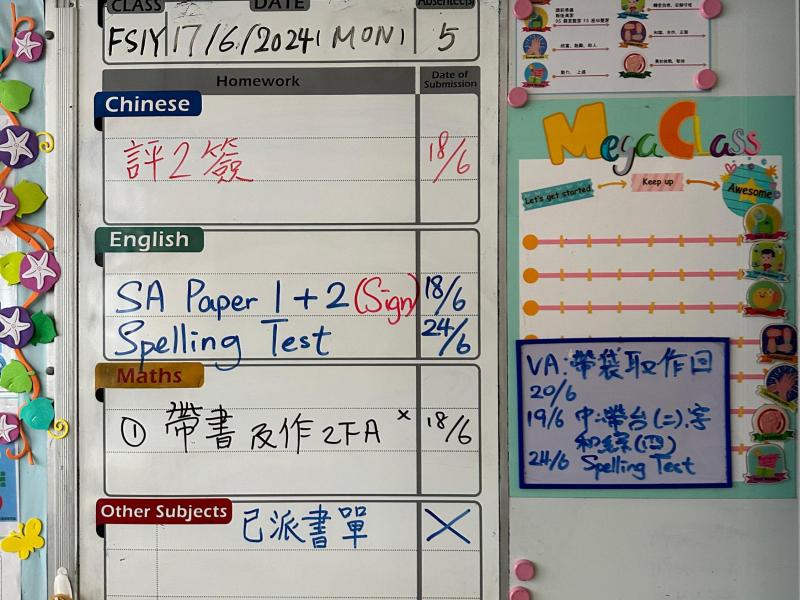 CLASS DATE Absentee(s)
17/6/2024 (MON) 5
Homework Date of Submission
Chinese
評2簽 18/6
English
SA Paper 1+2 (Sign) 18/6
Spelling Test 24/6
Maths
① 帶書及作2下A 18/6
Other Subjects
已派書單 ×
Mega Class
Let's get started
Keep up
Awesome
VA:帶袋取作回
20/6
19/6 中:帶台(二).字
和綜(四)
24/6 Spelling Test